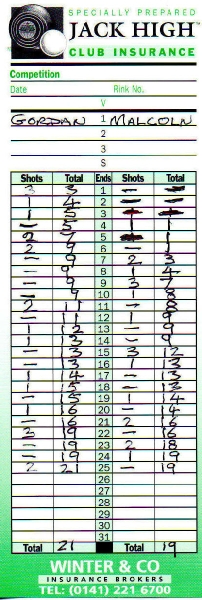 SPECIALLY PREPARED
JACK HIGH™
CLUB INSURANCE
Competition
Date Rink No.
V
GORDAN 1 MALCOLN
2
3
S
Shots Total Ends Shots Total
3 3 1 — —
1 4 2 — —
1 5 3 — —
— 5 4 1 1
2 7 5 1
2 9 6 — 1
— 9 7 2 3
— 9 8 1 4
— 9 9 3 7
— 9 10 1 8
2 11 11 — 8
— 11 12 1 9
1 12 13 — 9
1 13 14 — 9
— 13 15 3 12
— 13 16 1 13
1 14 17 — 13
1 15 18 — 13
— 15 19 1 14
1 16 20 — 14
— 16 21 2 16
3 19 22 — 16
— 19 23 2 18
— 19 24 1 19
2 21 25 — 19
26
27
28
29
30
31
Total 21 Total 19
WINTER & CO
INSURANCE BROKERS
TEL: (0141) 221 6700